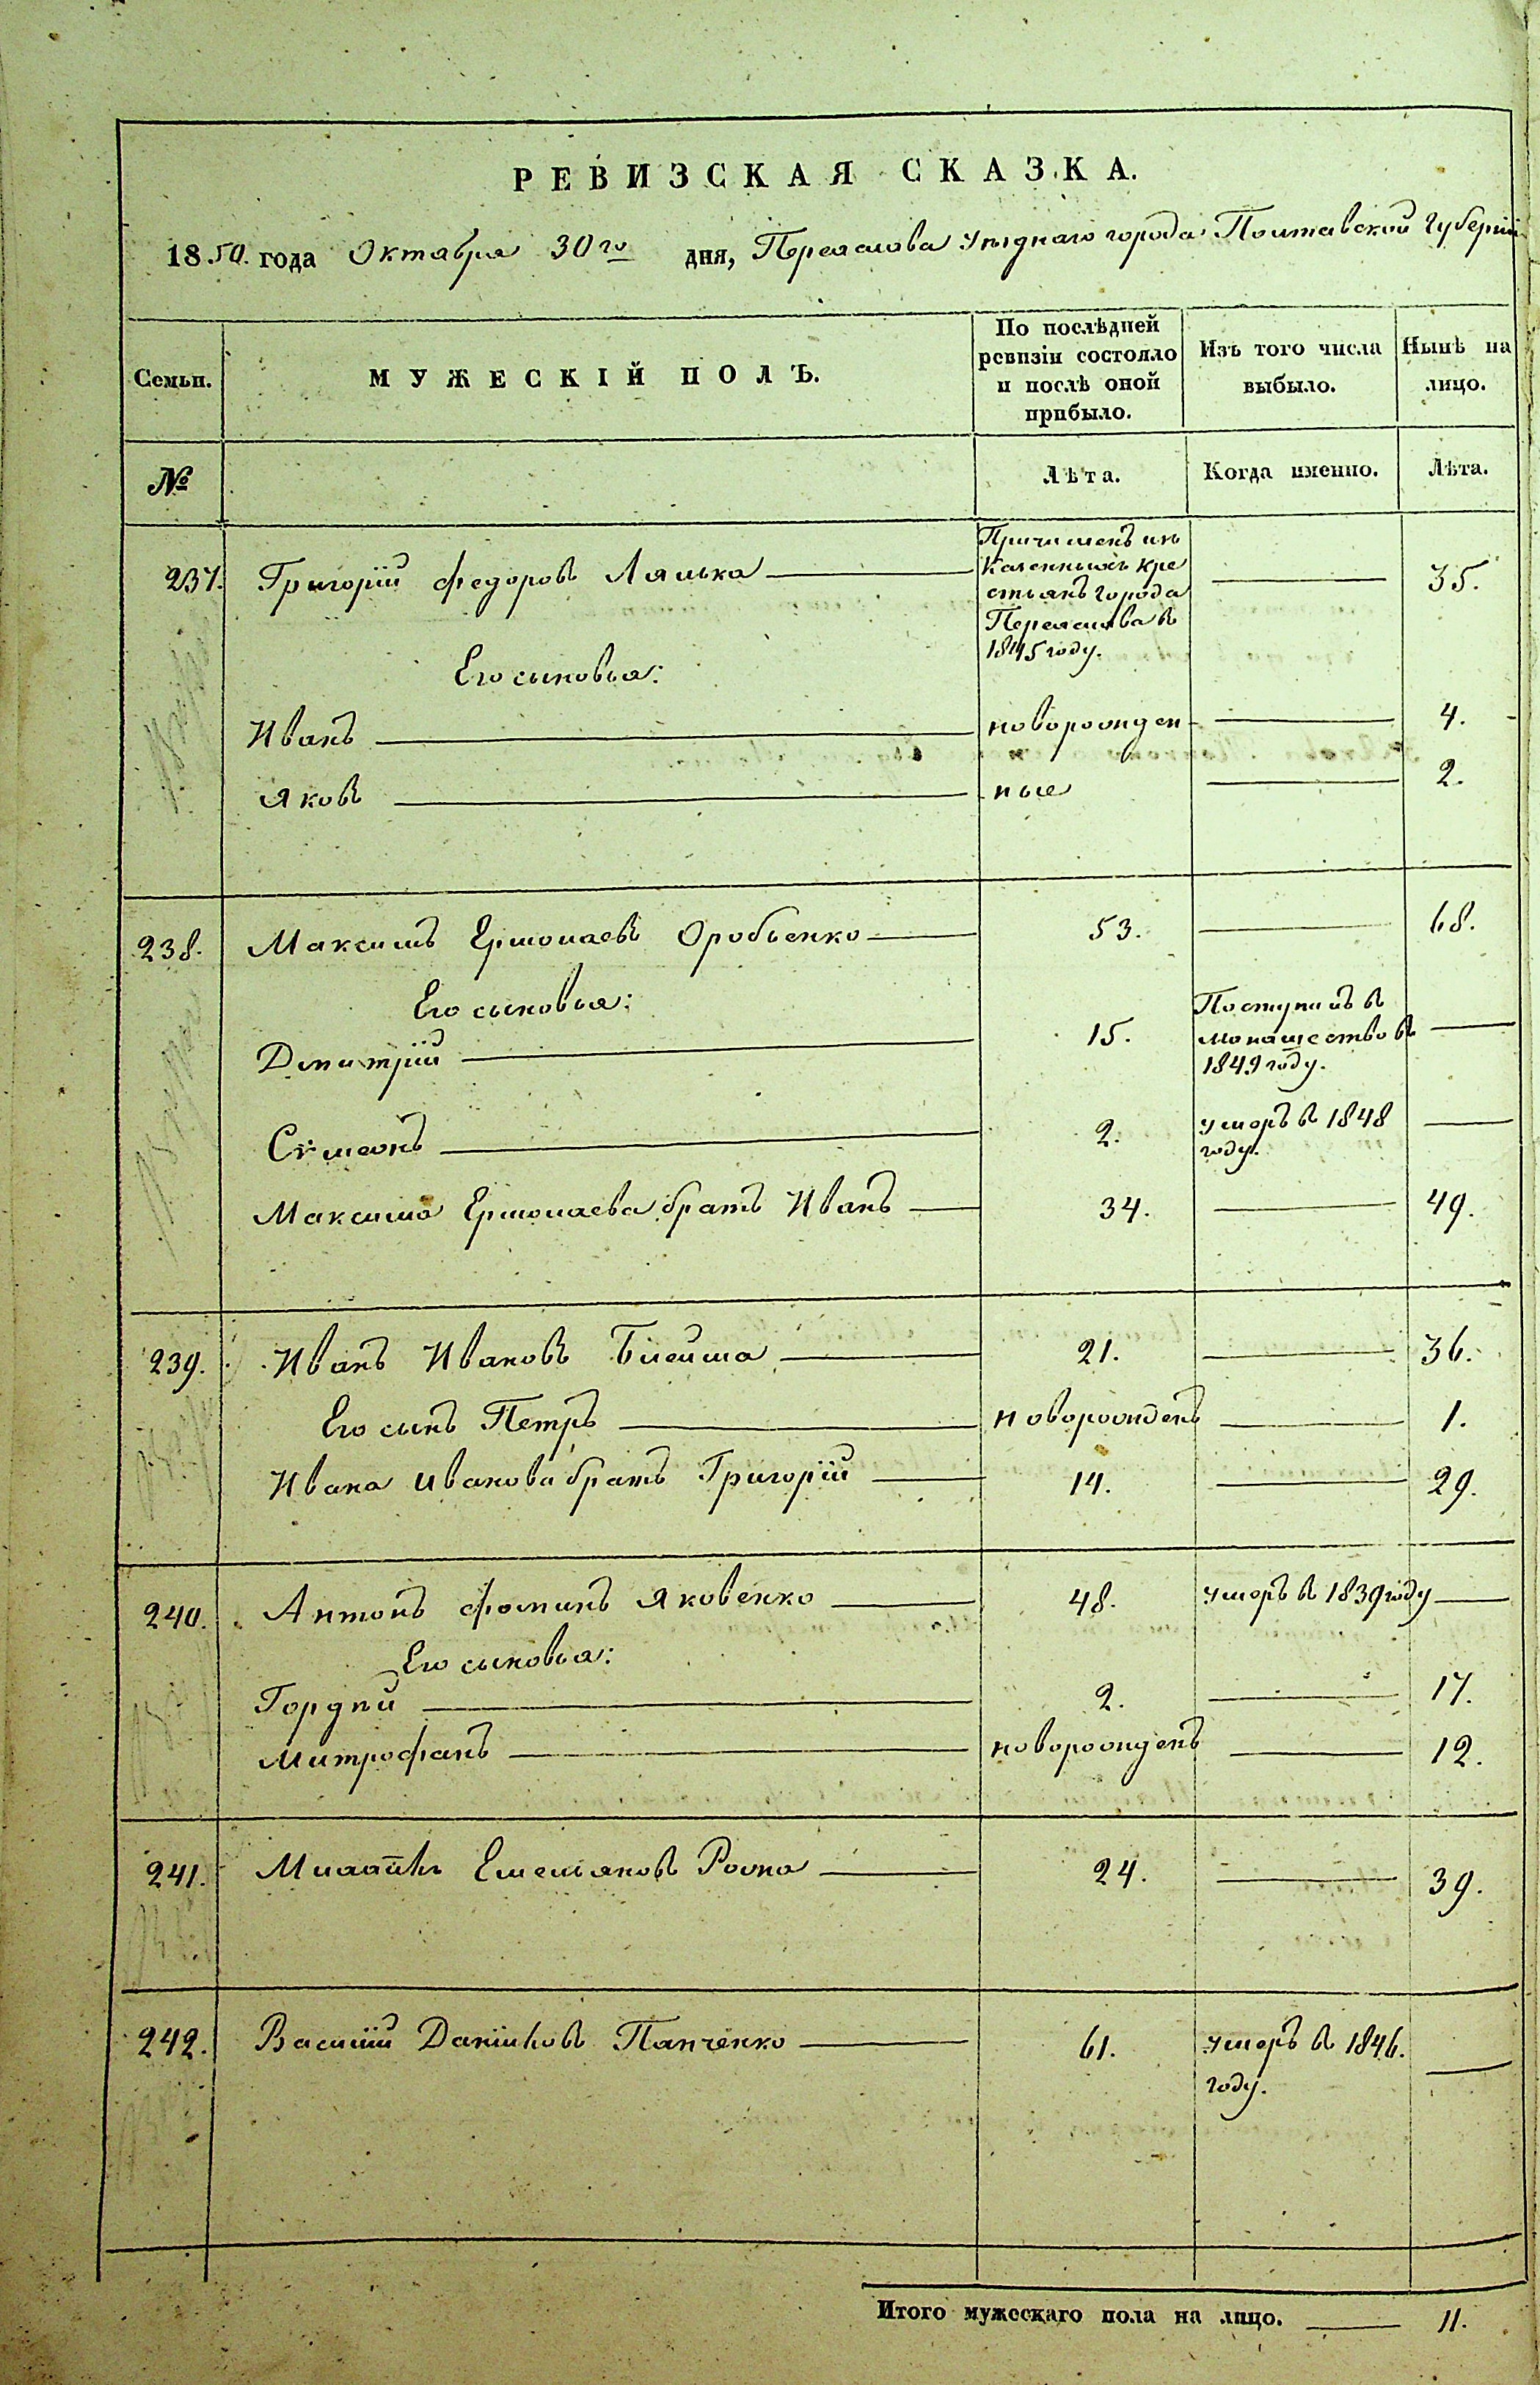 РЕВИЗСКАЯ СКАЗКА.
1850. года Октября 30го дня, Переяслова уѣзднаго города Полтавской Губерніи
Семьи.
МУЖЕСКІЙ ПОЛЪ.
По послѣдней
ревизіи состояло
и послѣ оной
прибыло.
Изъ того числа
выбыло.
Нынѣ на
лицо.
№
Лѣта.
Когда именно.
Лѣта.
Причисленъ изъ
Казенныхъ Кре
237. Григорій Федоровъ Лялька 35.
стьянъ города
Переяслова в
1845 году.
Его сыновья:
Иванъ новорожден 4.
Яковъ ные 2.
238. Максимъ Ермолаевъ Оробьенко 53. 68.
Его сыновья:
Поступилъ в
Дмитрій 15. монашество в
1849 году.
Сѵмеонъ 2. умеръ в 1848
году.
Максима Ермолаева братъ Иванъ 34. 49.
239. Иванъ Ивановъ 21. 36.
Его сынъ Петръ новорожденъ 1.
Ивана Иванова братъ Григорій 14. 29.
240. Антонъ Фоминъ Яковенко 48. умеръ в 1839 году
Его сыновья:
Гордѣй 2. 17.
Митрофанъ новорожденъ 12.
241. Емельяновъ 24. 39.
242. Василій Даніиловъ Панченко 61. умеръ в 1846.
году.
Итого мужескаго пола на лицо. 11.